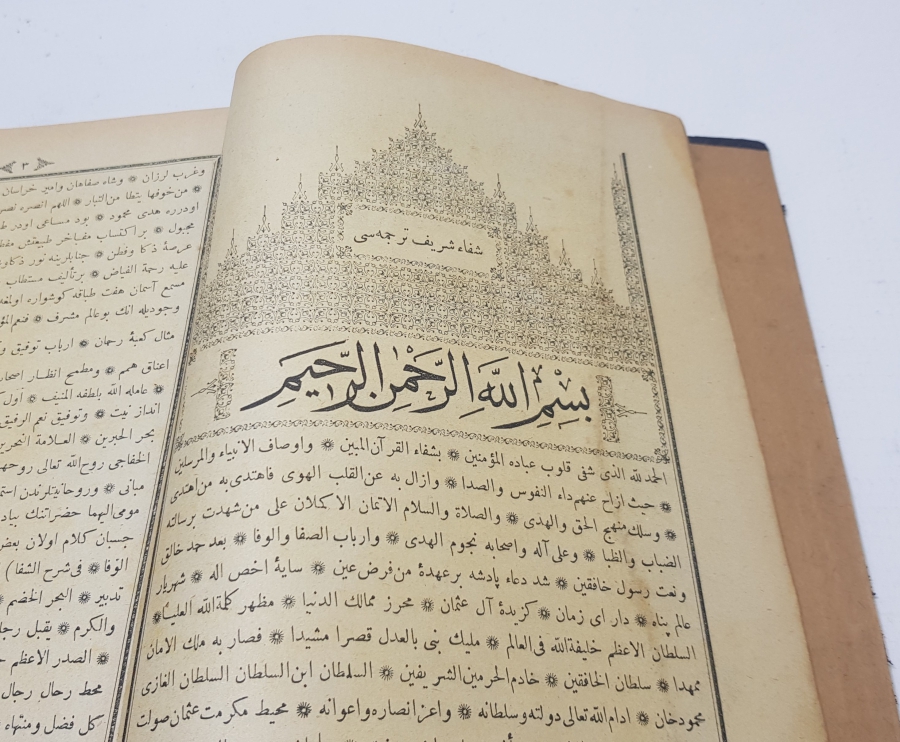 شفاء شریف ترجمه‌سی
بِسْمِ اللّٰهِ الرَّحْمٰنِ الرَّحِیْمِ
الحمدلله الذی شفی قلوب عباده المؤمنین ❋ بشفاء القرآن المبین ❋ واوصاف الانبیاء والمرسلین
❋ حیث ازاح عنهم داء النفوس والصدا ❋ وازال به عن القلب الهوی فاهتدی به من اهتدی
❋ وسلك منهج الحق والهدی ❋ والصلاة والسلام الاتمان الاكملان علی من شهدت برسالته
الضباب والظبا ❋ وعلی آله واصحابه نجوم الهدی ❋ وارباب الصفا والوفا ❋ بعد حمد خالق
ونعت رسول خافقین ❋ شد دعاء پادشه برعهدۀ من فرض عین ❋ سایۀ اخص اله ❋ شهریار
عالم پناه ❋ دار ای زمان ❋ كزیدۀ آل عثمان ❋ محرز ممالك الدنیا ❋ مظهر كلمة الله العلیا ❋
السلطان الاعظم خلیفة الله فی العالم ❋ ملیك بنی بالعدل قصرا مشیدا ❋ فصار به ملك الامان
ممهدا ❋ سلطان الخافقین ❋ خادم الحرمین الشریفین ❋ السلطان ابن السلطان السلطان الغازی
محمود خان ❋ ادام الله تعالی دولته وسلطانه ❋ واعز انصاره واعوانه ❋ محیط مكرمت عثمان صولت
٣
وغرب لرزان ❋ وشاه صفاهان وامیر خراسان
❋ من خوفها یتطا من النبار ❋ اللهم انصره نصر
اودرره هدی محمود ❋ بود مساعی اودر
مجبول ❋ برا كنساب مفاخر طبیعتش
عرصۀ ذكا وفطن ❋ جنابلرینه نور
علیه رحمة الفیاض ❋ برتألیف مستطاب
مسمع آسمان هفت طباقه كوشواره اولمغه
وجودیله انك بوعالم مشرف ❋
مثال كعبۀ رحمان ❋ ارباب توفیق
اعناق همم ❋ ومطمح انظار
❋ عامله الله بلطفه المنیف ❋ اول
انداز نیت ❋ وتوفیق نعم الرفیق
بحر الحبرین ❋ العلامة النحریر
الخفاجی روح الله تعالی روحه
مبانی ❋ وروحانیتلرندن
مومی الیهما حضراتنك
حسبان كلام اولان بعض
الوفا ❋ فی شرح الشفا )
تدبیر ❋ البحر الخضم ❋
والكرم ❋ یقبل
❋ الصدر الاعظم
محط رحال رجال
كل فضل ومنتهاء